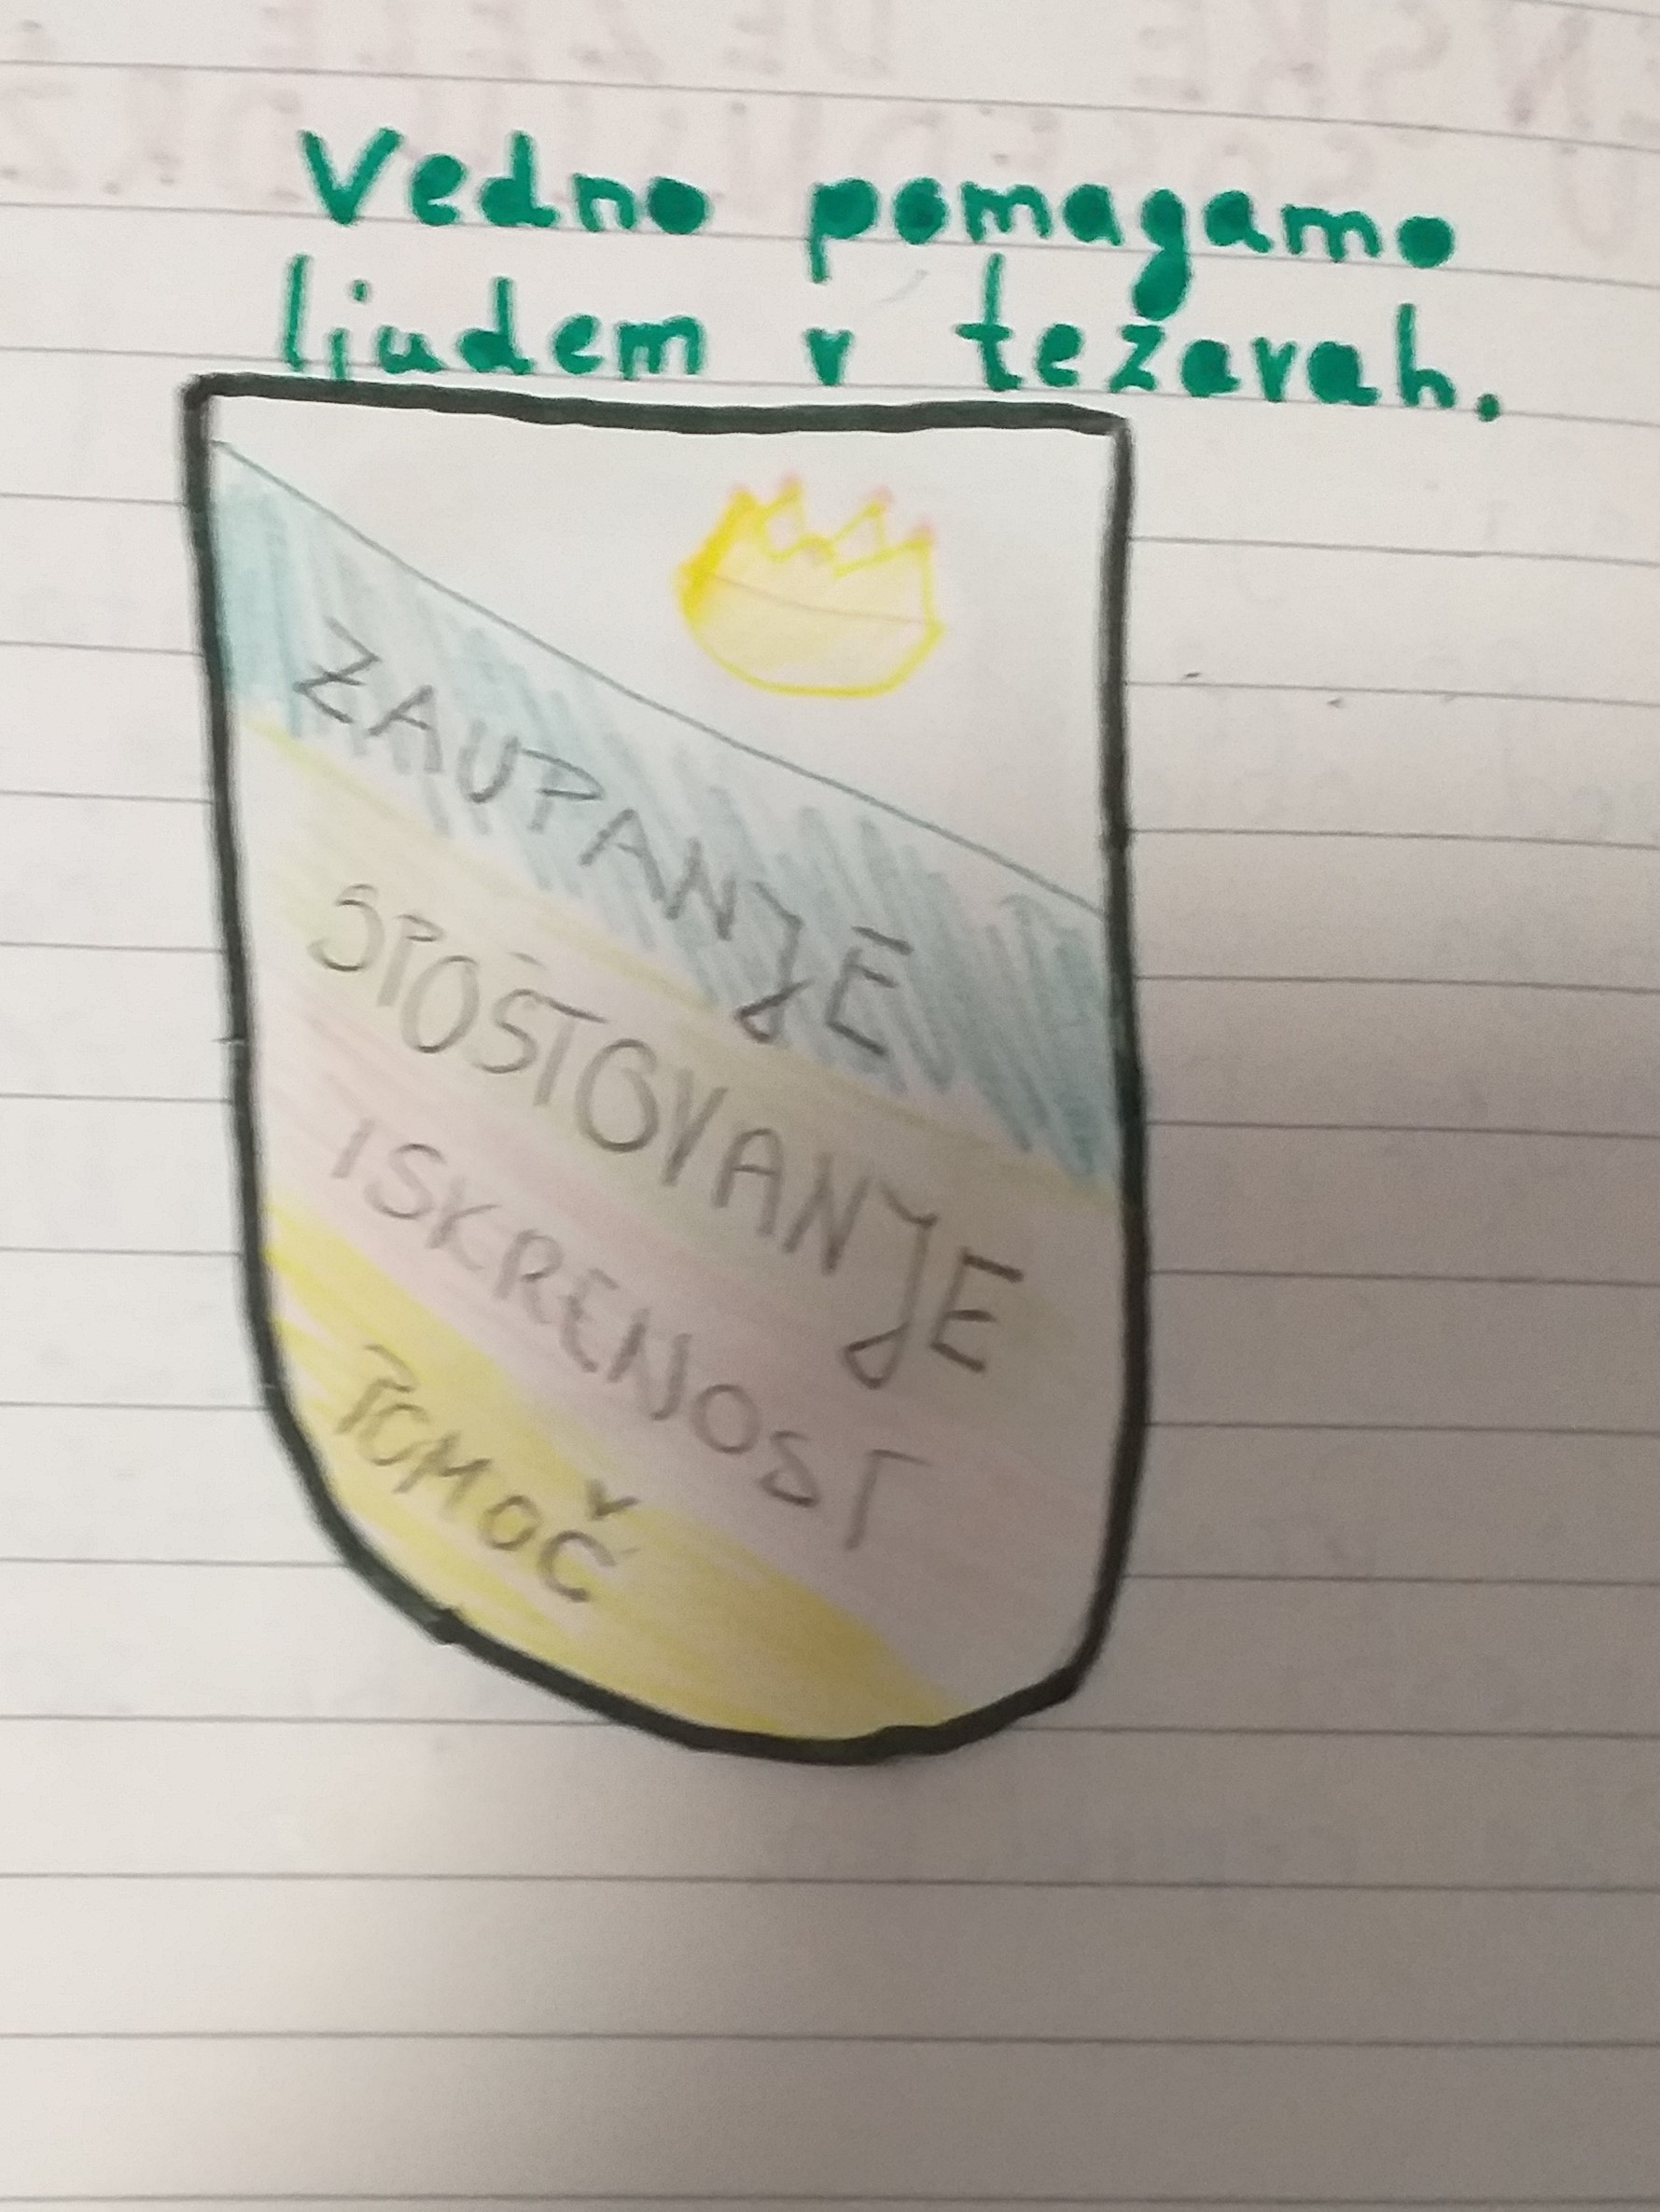 Vedno pomagamo
ljudem v težavah.
ZAUPANJE
SPOŠTOVANJE
ISKRENOST
POMOČ